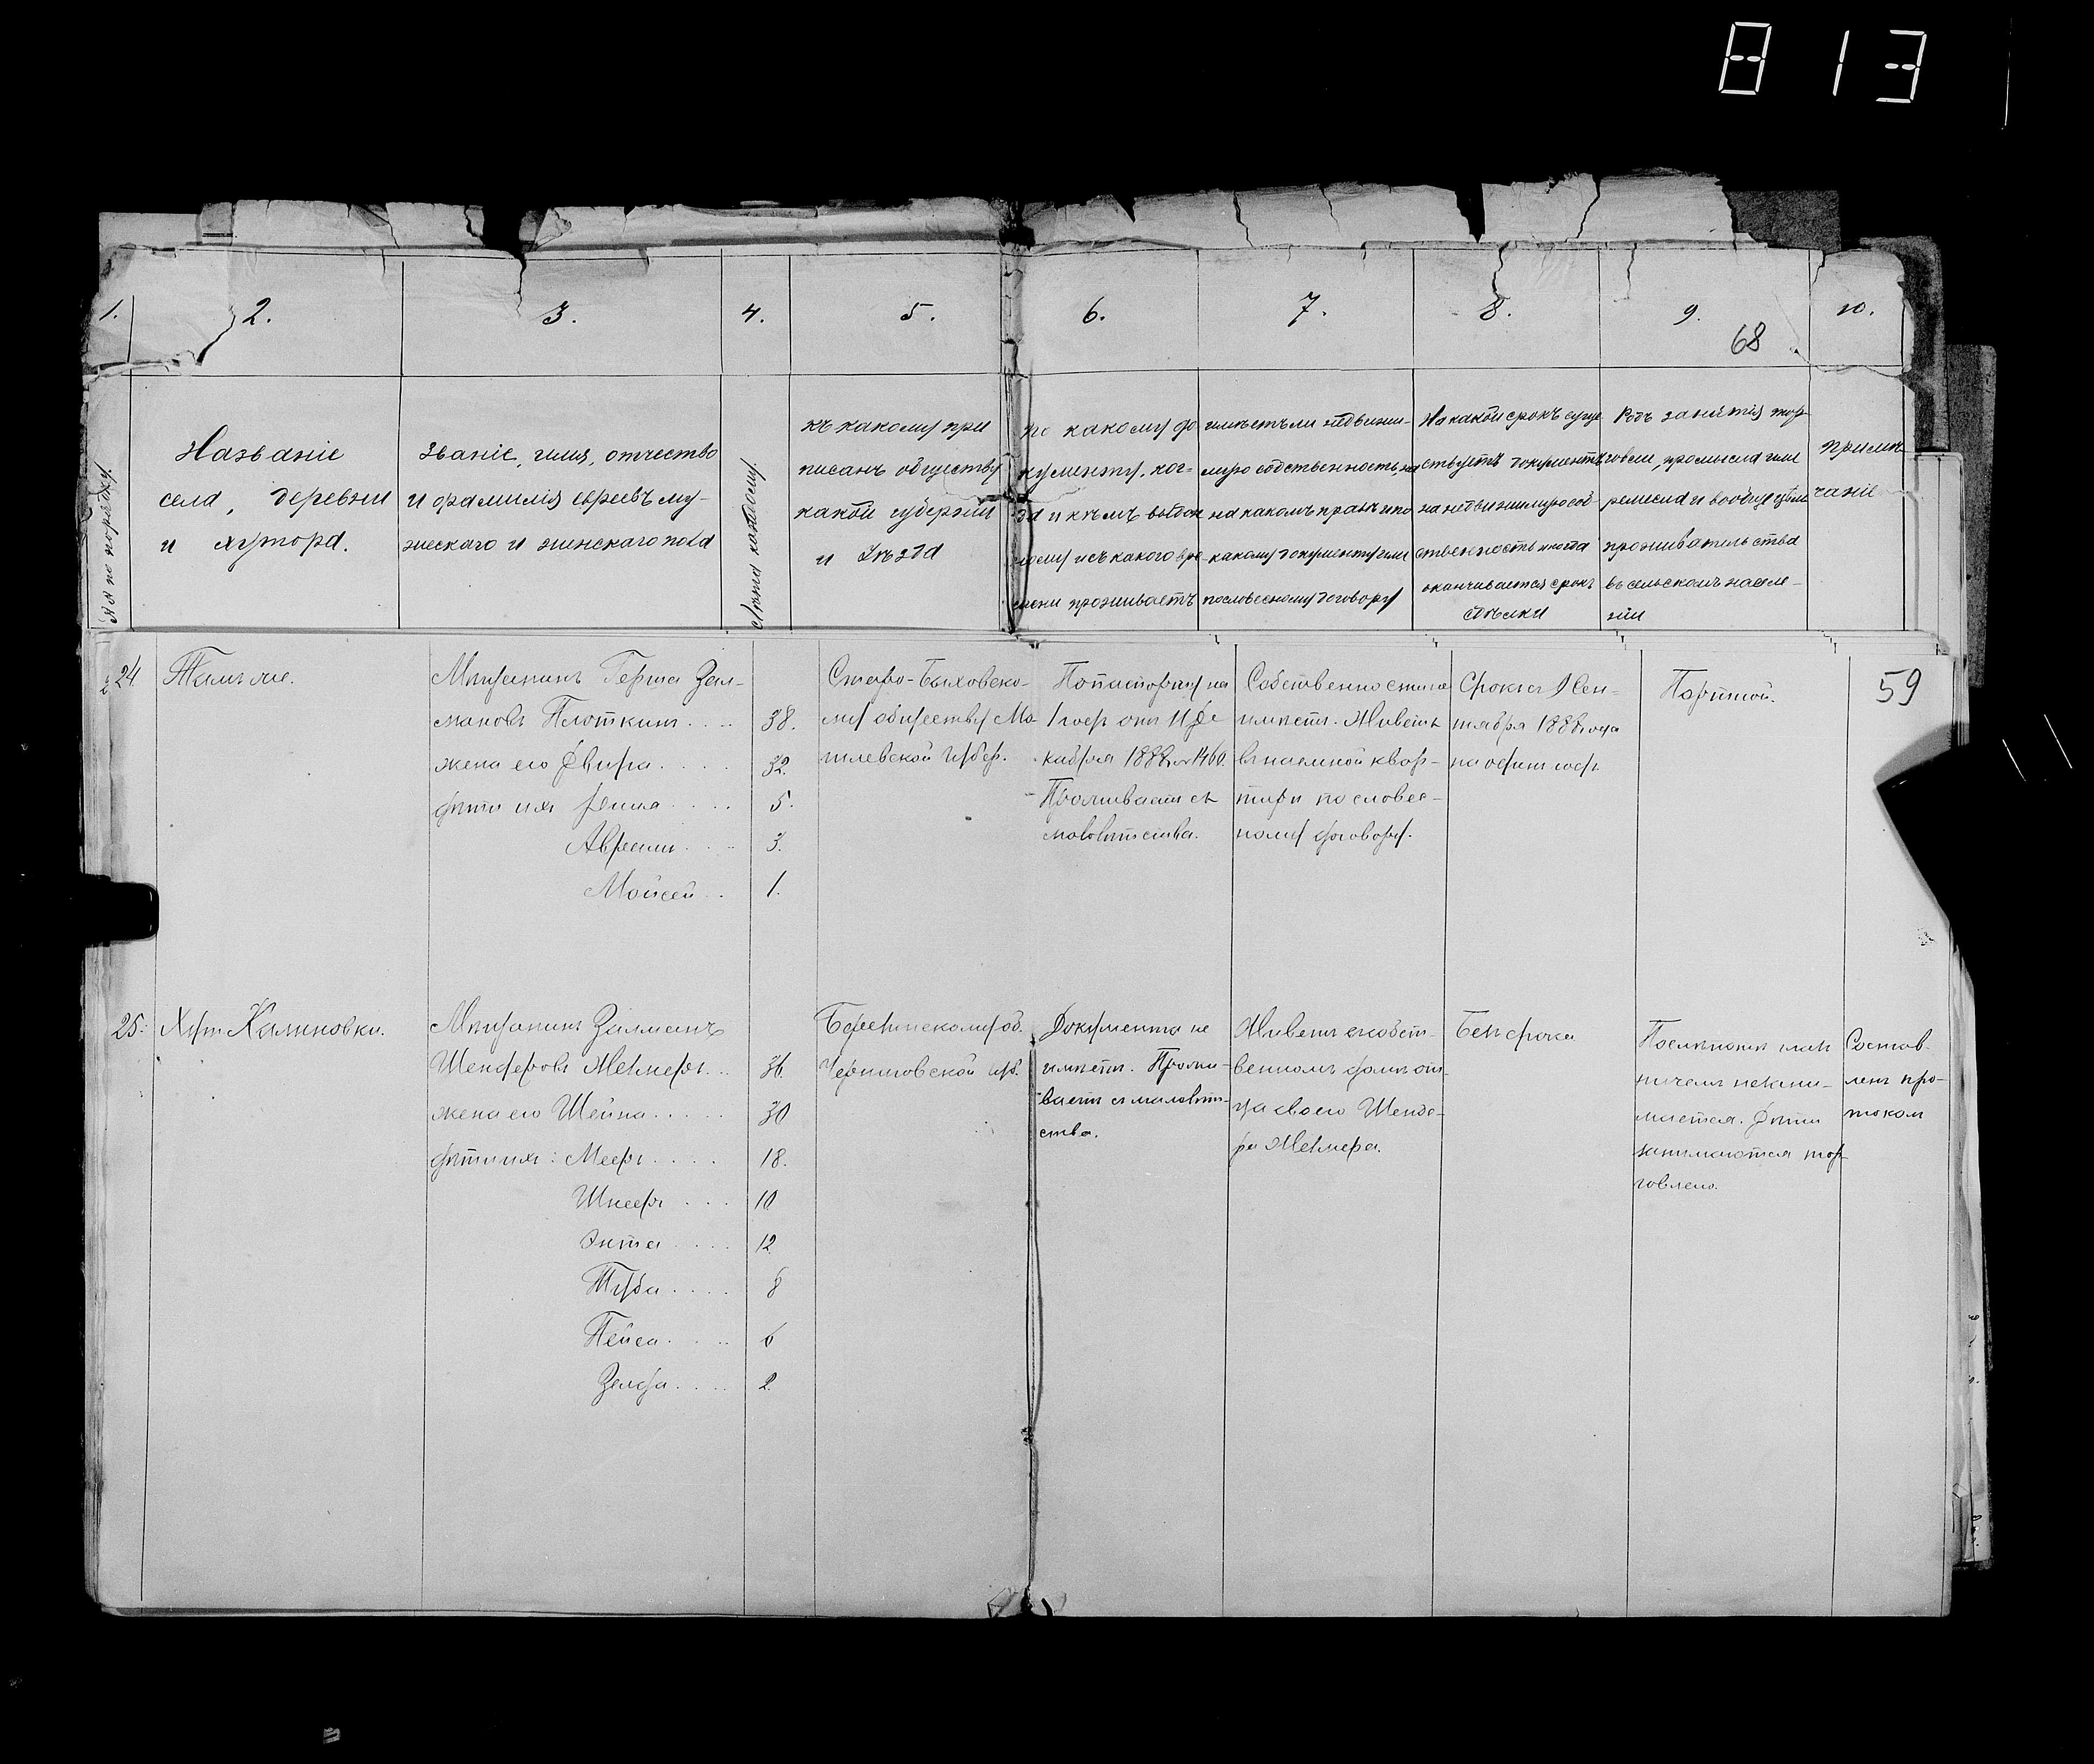 813
1.
2.
3.
4.
5.
6.
7.
8.
9.
10.
68
№№ по порядку.
Названіе
села, деревни
и хутора.
Званіе, имя, отчество
и фамилія евреевъ му-
жескаго и женскаго пола
Лѣта каждому
къ какому при
писанъ обществу
какой губерніи
и уѣзда
по какому до
кументу, ког-
да и кѣмъ выдан
ному и съ какого вре-
мени проживаетъ
имѣетъ ли недвижи-
мую собственность, на
на какомъ правѣ и по
какому документу или
пословесному договору
На какой срокъ суще
ствуетъ документъ
на недвижимую соб
ственность и когда
оканчивается срокъ
сдѣлки
Родъ занятія тор
говли, промысла или
ремесла и вообще цѣли
проживательства
въ сельскомъ населе-
ніи
примѣ
чаніе
24.
Тамъ же.
Мѣщанинъ Герша Зал-
мановъ Плоткинъ . . . . 38.
жена его Двира . . . . 32.
дѣти ихъ . . . . 5.
Авреамъ . . . . 3.
Мойсей . . 1.
Старо-Быховско-
му обществу Мо-
гилевской губер.
По паспорту на
1 годъ отъ 11 Де
кабря 1888 г. № 1460.
Проживаетъ съ
маловѣтства.
Собственности не
имѣетъ. Живетъ
въ наемной квар-
тирѣ по словес-
ному договору.
Срокъ съ 1 Сен-
тября 1888 года
на одинъ годъ.
Портной.
59
25.
Хут. Калиновка.
Мѣщанинъ Залманъ
Шендеровъ . . 36.
жена его Шейна . . . . . 30
дѣти ихъ: Мееръ . . . . 18.
Шнееръ . . . . 10
Энта . . . . 12
Туба . . . . 8
Пейса . . . . 6
Зелда . . . . 2.
об.
Черниговской губ.
Документа не
имѣетъ. Прожи-
ваетъ съ маловѣт-
ства.
Живетъ въ собст-
венномъ домѣ от-
ца своего Шенде-
ра
Безъ срока
ничемъ незани-
мается. Дѣти
занимаются тор-
говлею.
Состав-
ленъ про-
токол